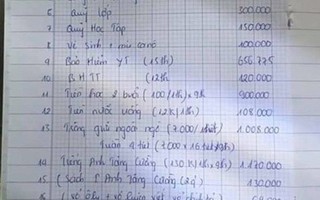 6 Quỹ lớp 300.000
7 Quỹ Học Tập 150.000
8 Vệ sinh 100.000
9 Bảo Hiểm YT (15th) 656.775
10 BHTT (12th) 120.000
11 học 2 buổi (100/1th) x 9th 900.000
12 Tiền nước uống (12K/1th) 108.000
13 Trông giữ ngoài ngõ (7.000/tiết) 1.008.000
Tuần 4 tiết (7.000 x 16 tiết/9th)
14 Tiếng Anh Tăng Cường (130K/1th x 9th) 1.170.000
15 (Sách T Anh Tăng Cường (2q) 130.000